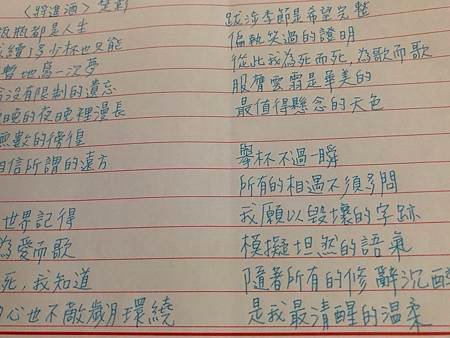 〈將進酒〉 楚影
瓶瓶都是人生
續多少杯也只能
暫地為一次夢
沒有限制的遺忘
晚的夜晚裡漫長
無數的徬徨
相信所謂的遠方
世界記得
為愛而歌
死，我知道
心也不敵歲月環繞
跋涉季節是希望完整
偏執笑過的證明
從此我為死而死，為歌而歌
服膺雲是華美的
最值得懸念的天色
舉杯不過一瞬
所有的相遇不須多問
我願以毀壞的字跡
模擬坦然的語氣
隨著所有的修辭沉醉
是我最清醒的溫柔